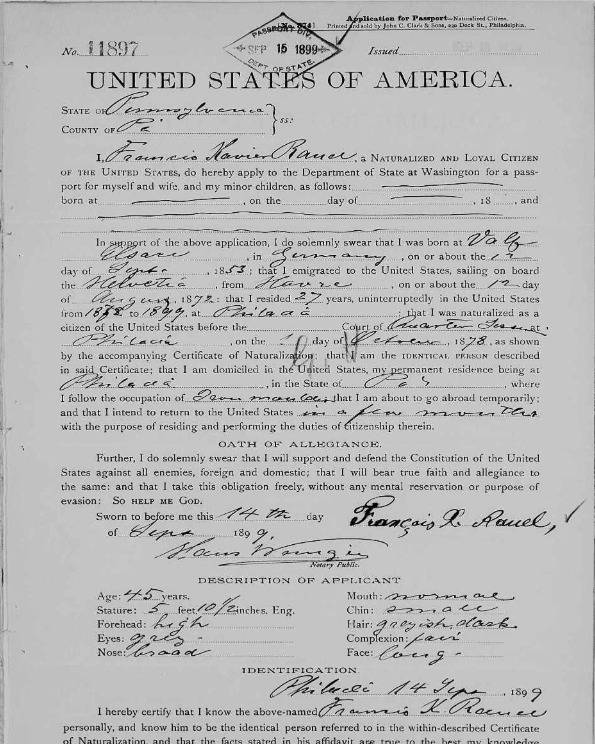 Application for Passport—Naturalized Citizen.
Printed and sold by John C. Clark & Sons, 230 Dock St., Philadelphia.
PASSPORT DIV.
No. 11897
SEP 15 1899
Issued
DEPT OF STATE.
UNITED STATES OF AMERICA.
STATE OF Pennsylvania
COUNTY OF Pa } ss:
I, Francis Xavier Rauel, a NATURALIZED AND LOYAL CITIZEN
OF THE UNITED STATES, do hereby apply to the Department of State at Washington for a pass-
port for myself and wife, and my minor children, as follows:
born at , on the day of , 18 , and
In support of the above application, I do solemnly swear that I was born at Valf
Elsace, in Germany, on or about the 12
day of Sept., 1853; that I emigrated to the United States, sailing on board
the Helvetia, from Havre, on or about the 12 day
of August, 1872: that I resided 27 years, uninterruptedly in the United States
from 1872 to 1899, at Philada; that I was naturalized as a
citizen of the United States before the Court of Quarter at
Philada, on the day of October, 1878, as shown
by the accompanying Certificate of Naturalization; that I am the IDENTICAL PERSON described
in said Certificate; that I am domiciled in the United States, my permanent residence being at
Philada, in the State of Pa, where
I follow the occupation of Iron moulder, that I am about to go abroad temporarily;
and that I intend to return to the United States in a few months
with the purpose of residing and performing the duties of citizenship therein.
OATH OF ALLEGIANCE.
Further, I do solemnly swear that I will support and defend the Constitution of the United
States against all enemies, foreign and domestic; that I will bear true faith and allegiance to
the same: and that I take this obligation freely, without any mental reservation or purpose of
evasion: SO HELP ME GOD.
Sworn to before me this 14th day
François X. Rauel,
of Sept 1899.
Hans
Notary Public.
DESCRIPTION OF APPLICANT
Age: 45 years. Mouth: normal
Stature: 5 feet 10 1/2 inches. Eng. Chin: small
Forehead: high Hair: greyish dark
Eyes: grey - Complexion: fair
Nose: broad Face: long -
IDENTIFICATION.
Philada 14 Sept, 1899
I hereby certify that I know the above-named Francis X. Rauel
personally, and know him to be the identical person referred to in the within-described Certificate
of Naturalization, and that the facts stated in his affidavit are true to the best of my knowledge